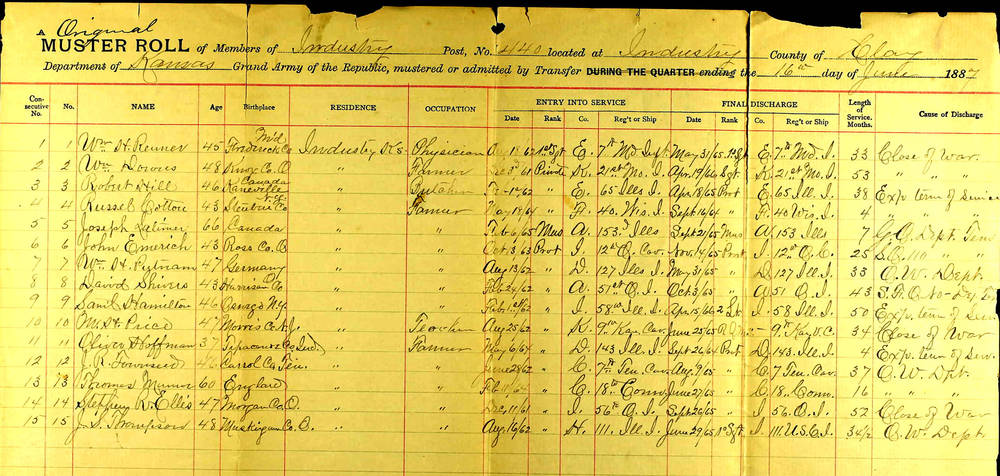 Original
A MUSTER ROLL of Members of Industry Post, No. 440 located at Industry County of Clay
Department of Kansas Grand Army of the Republic, mustered or admitted by Transfer DURING THE QUARTER ending the 16th day of June 1887
Consecutive No. No. NAME Age Birthplace RESIDENCE OCCUPATION ENTRY INTO SERVICE Date Rank Co. Reg't or Ship FINAL DISCHARGE Date Rank Co. Reg't or Ship Length of Service. Months. Cause of Discharge
1 1 Wm H. Renner 45 Fredrick Co Md Industry Ks Physician Aug 62 1st Sgt E. 7th Md Inft May 31/65 1st Sgt E. 7th Md. I. 33 Close of war
2 2 Wm Downs 48 Knox Co. O " Farmer 61 Private K. 21st Mo. I. Apr 19/66 Sgt. K. 21st Mo. I. 53 " "
3 3 Robert Hill 46 Kaneville Canada " Butcher 1st/62 " E. 65 Ills I. Apr 18/65 Prvt E. 65 Ill. I. 38 Exp term of service
4 4 Russel Cotton 43 Steuben Co N.Y. " Farmer May 18/64 " A. 40. Wis. I. Sept 16/64 " A. 40 Wis. I. 4 " " "
5 5 Joseph Latimer 66 Canada " " Feb 6/65 Mus A. 153d Ills Sept 21/65 Mus A 153 Ills 7 G.O. Dept Tenn
6 6 John Emerich 43 Ross Co. O " " Oct 3/63 Prvt I. 12th O. Cav. Nov. 14/65 Prvt I. 12th O. C. 25
7 7 Wm H. Putnam 47 Germany " " Aug 13/62 " D. 127 Ills I. May 31/65 " D. 127 Ill. I. 33 O. W. Dept
8 8 David 43 Harrison Co " " Feb 24/62 " A. 51st O. I. Oct 3/65 " A 51 O. I. 43
9 9 Saml Hamilton 46 Oswego N.Y. " " Feb 62 " I. 58th Ill. I. Apr 15/66 I. 58 Ill. I. 50 Exp. term of Ser.
10 10 47 Morris Co. N.J. " Teacher Aug 25/62 " K. 9th Cav. June 25/65 9th 34 Close of War
11 11 Oliver Hoffman 37 Tippacanoe Co Ind. " Farmer May 6/64 " D. 143 Ill. I. Sept 26/64 Prvt D. 143 Ill. I. 4 Exp. term of Serv.
12 12 J. R. Townsend 46 Carrol Co. Ten. " " June 28/62 " C. 7th Ten. Cav. Aug 9/65 " C. 7 Ten. Cav. 37 O. W. Dpt.
13 13 Thomas 60 England " " Feb 64 " C. 18th Conn June 27/65 " C. 18th Conn. 16 " "
14 14 Jeffrey R. Ellis 47 Morgan Co. O. " " Dec 11/61 " I. 56th O. I. Sept 26/65 " I. 56. O. I. 52 Close of War
15 15 J. S. Thompson 48 Muskigum Co. O. " " Aug 16/62 " H. 111. Ill. I. June 29/65 1st Sgt I. 111. U.S.C.I. 34 1/2 O. W. Dept